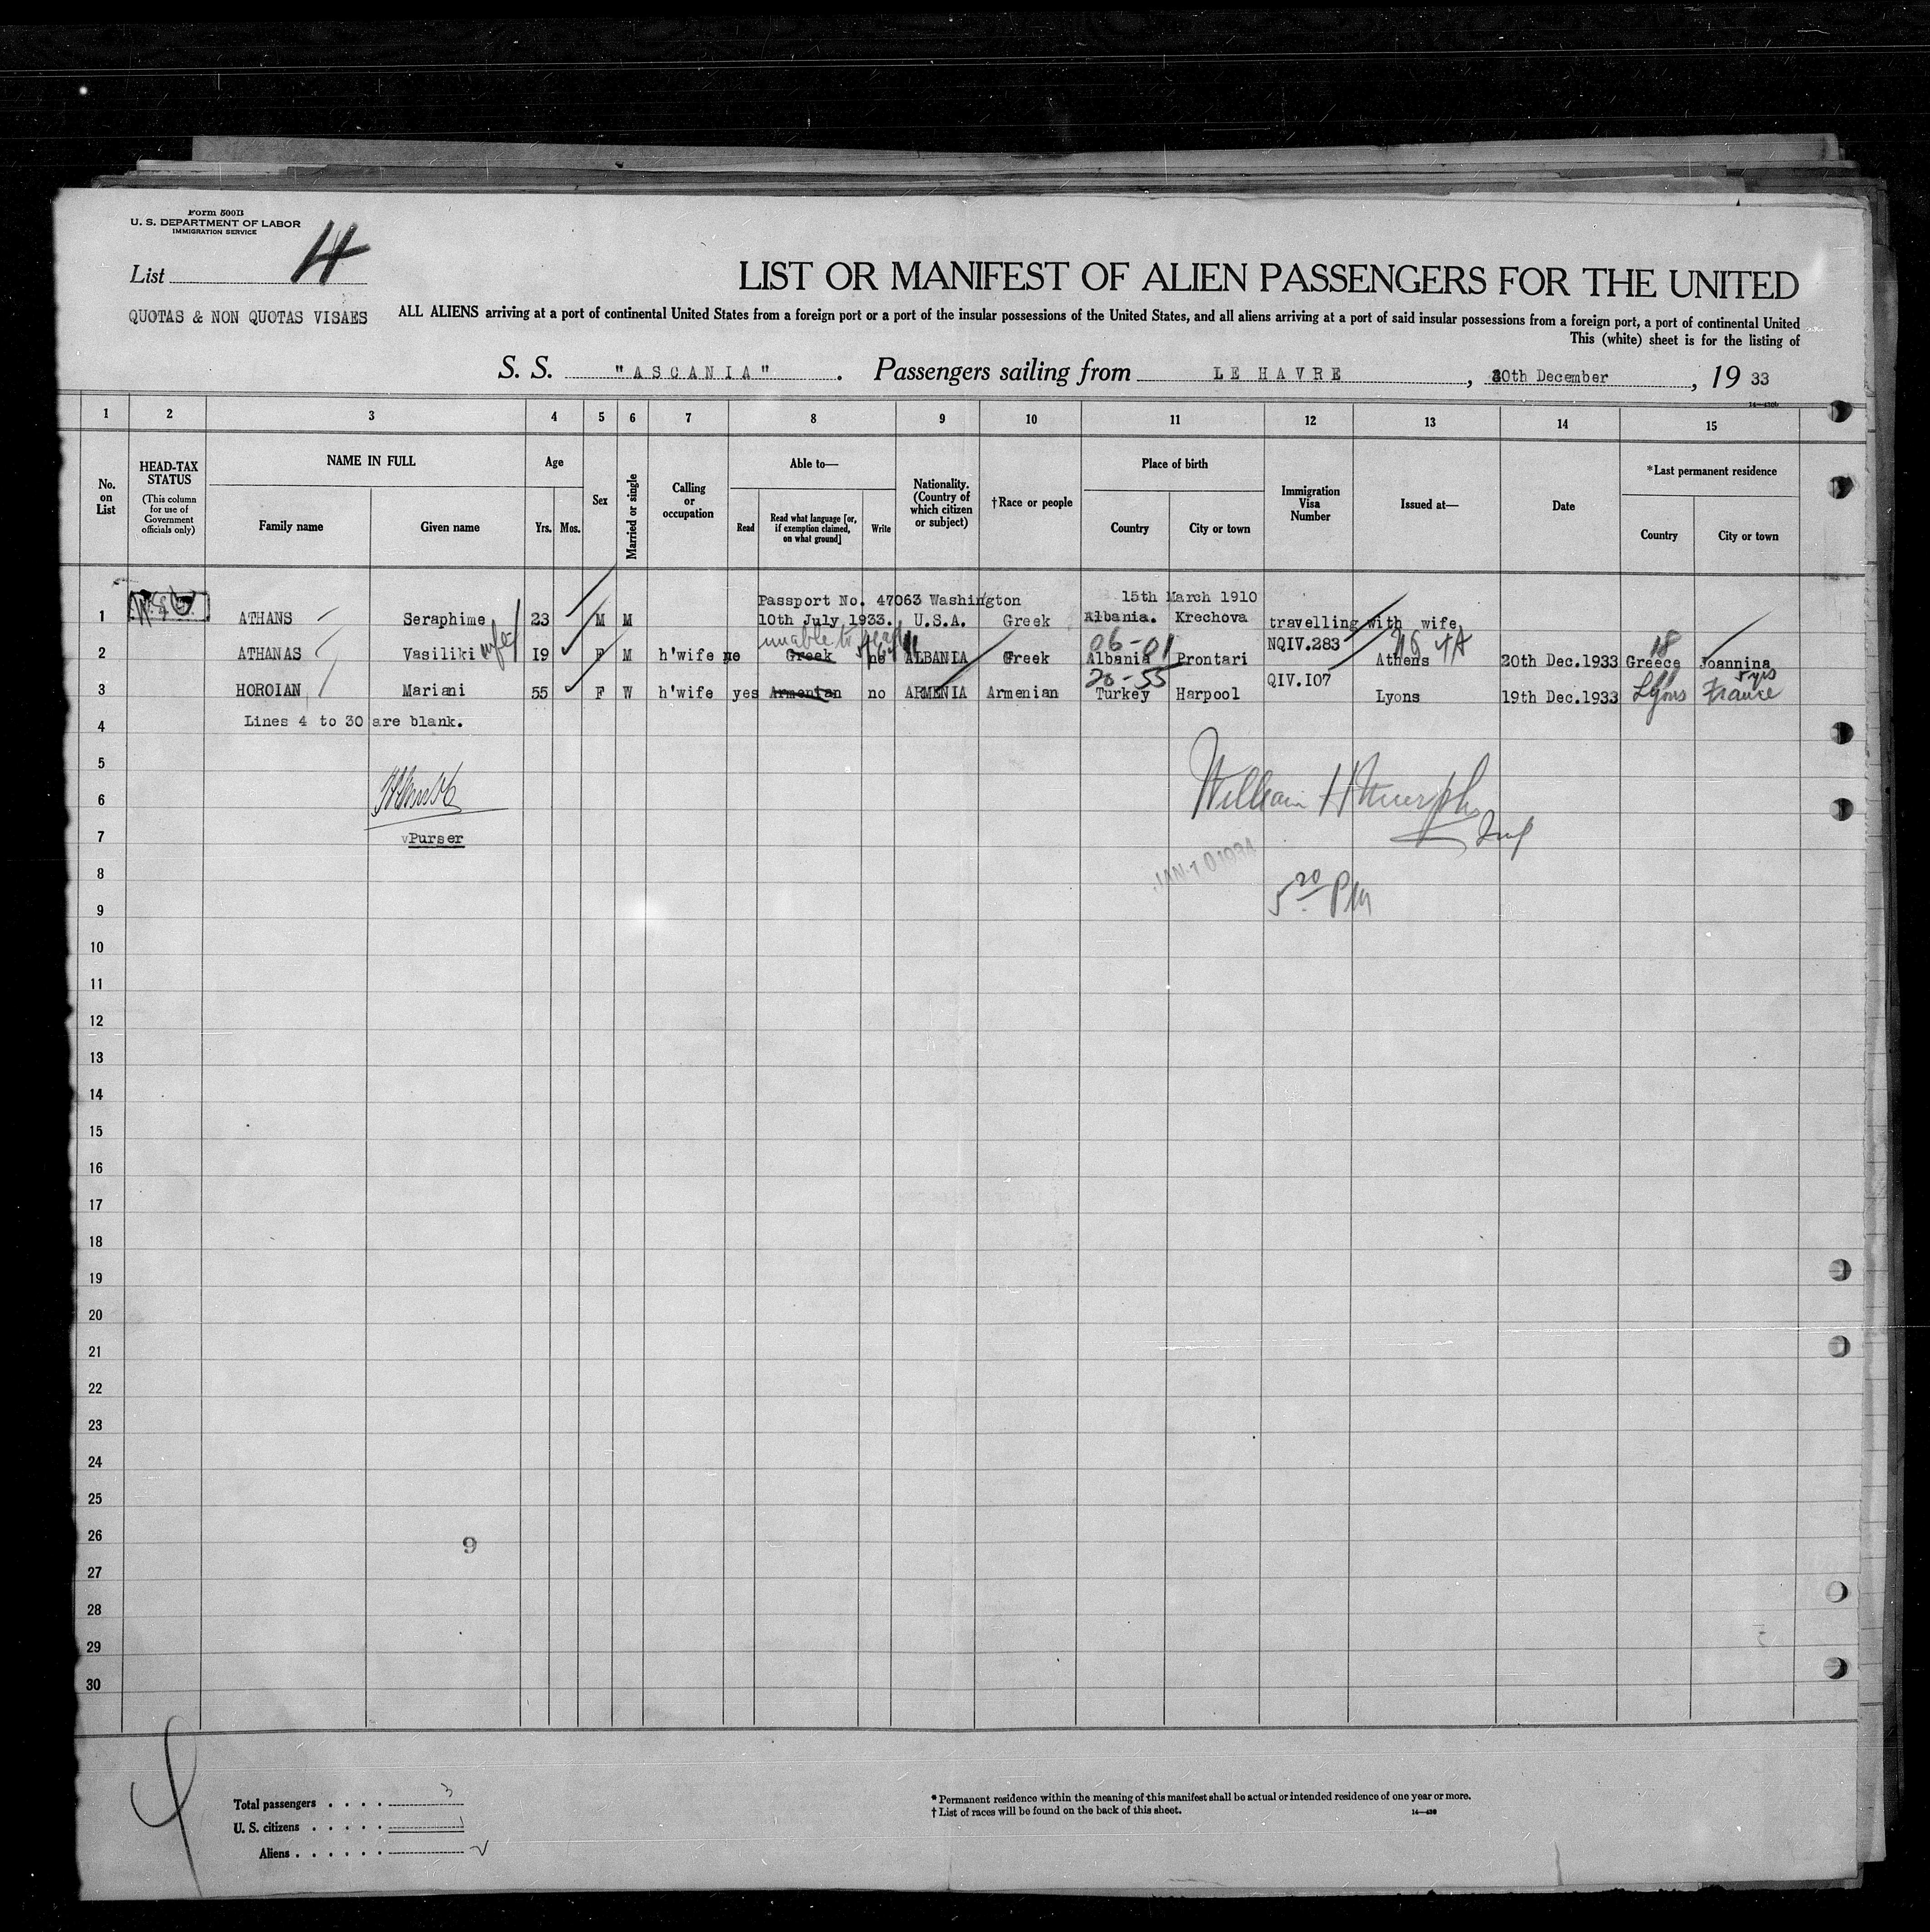 Form 500B
U. S. DEPARTMENT OF LABOR
IMMIGRATION SERVICE
List 4
QUOTAS & NON QUOTAS VISAES
LIST OR MANIFEST OF ALIEN PASSENGERS FOR THE UNITED
ALL ALIENS arriving at a port of continental United States from a foreign port or a port of the insular possessions of the United States, and all aliens arriving at a port of said insular possessions from a foreign port, a port of continental United
This (white) sheet is for the listing of
S. S. "ASCANIA". Passengers sailing from LE HAVRE, 30th December, 19 33
1 2 3 4 5 6 7 8 9 10 11 12 13 14 15
No. on List
HEAD-TAX STATUS (This column for use of Government officials only)
NAME IN FULL
Family name Given name
Age
Yrs. Mos.
Sex
Married or single
Calling or occupation
Able to—
Read Read what language [or, if exemption claimed, on what ground] Write
Nationality. (Country of which citizen or subject)
†Race or people
Place of birth
Country City or town
Immigration Visa Number
Issued at—
Date
*Last permanent residence
Country City or town
Passport No. 47063 Washington 15th March 1910
1 ATHANS Seraphime 23 M M 10th July 1933. U.S.A. Greek Albania. Krechova travelling with wife
wife unable to 06-01 NQIV.283 18
2 ATHANAS Vasiliki 19 F M h'wife no Greek no ALBANIA Greek Albania Prontari Athens 20th Dec.1933 Greece Joannina
20-55 QIV.107 5 yrs
3 HOROIAN Mariani 55 F W h'wife yes Armenian no ARMENIA Armenian Turkey Harpool Lyons 19th Dec.1933 Lyons France
4 Lines 4 to 30 are blank.
5
6 William H Murphy
7 Purser Insp
JAN 10 1934
8 5 20 PM
9
10
11
12
13
14
15
16
17
18
19
20
21
22
23
24
25
26 9
27
28
29
30
Total passengers . . . . 3
U. S. citizens . . . . . 1
Aliens . . . . . . 2
* Permanent residence within the meaning of this manifest shall be actual or intended residence of one year or more.
† List of races will be found on the back of this sheet.